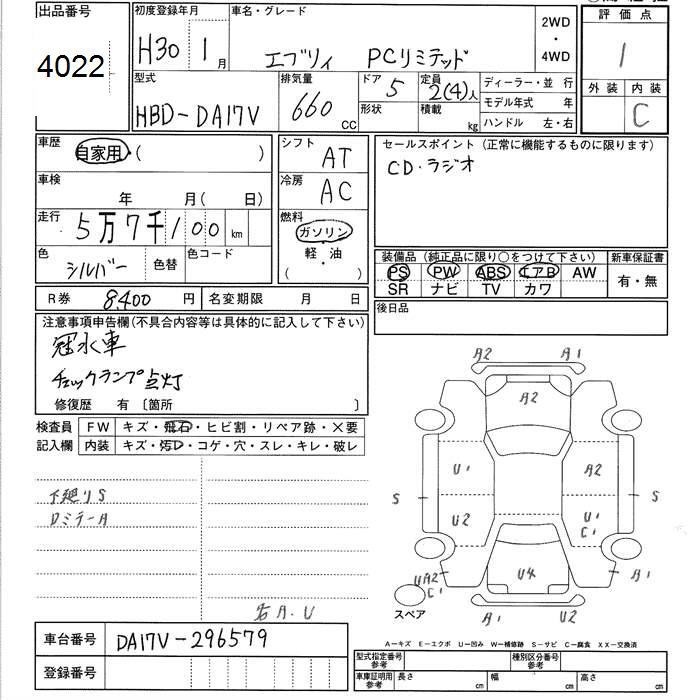 出品番号
4022
初度登録年月
H30 1月
車名・グレード
エブリィ PCリミテッド
2WD
・
4WD
評価点
1
外装 内装
C
型式
HBD-DA17V
排気量
660 CC
ドア 5
形状
定員 2(4)人
積載 kg
ディーラー・並 行
モデル年式 年
ハンドル 左・右
車歴
自家用・( )
車検
年 月( 日)
走行
5万7千100 km
色
シルバー 色替
色コード
シフト
AT
冷房
AC
燃料
ガソリン
軽・油
( )
セールスポイント(正常に機能するものに限ります)
CD・ラジオ
装備品(純正品に限り○をつけて下さい)
PS PW ABS エアB AW
SR ナビ TV カワ
新車保証書
有・無
R券 8400 円
名変期限 月 日
後日品
注意事項申告欄(不具合内容等は具体的に記入して下さい)
冠水車
チェックランプ点灯
修復歴 有〔箇所 〕
検査員
記入欄
FW キズ・飛石・ヒビ割・リペア跡・×要
内装 キズ・汚レ・コゲ・穴・スレ・キレ・破レ
下廻りS
DミラーA
右A.U
A2 A1
A2
U1 A2
S S
U2 U1
C1
U4
UA2
C1
A1 A1
スペア
A1 U2
車台番号 DA17V-296579
登録番号
A-キズ E-エクボ U-凹み W-補修跡 S-サビ C-腐食 XX-交換済
型式指定番号
参考
種別区分番号
参考
車庫証明用
参考
長さ cm 幅 cm 高さ cm